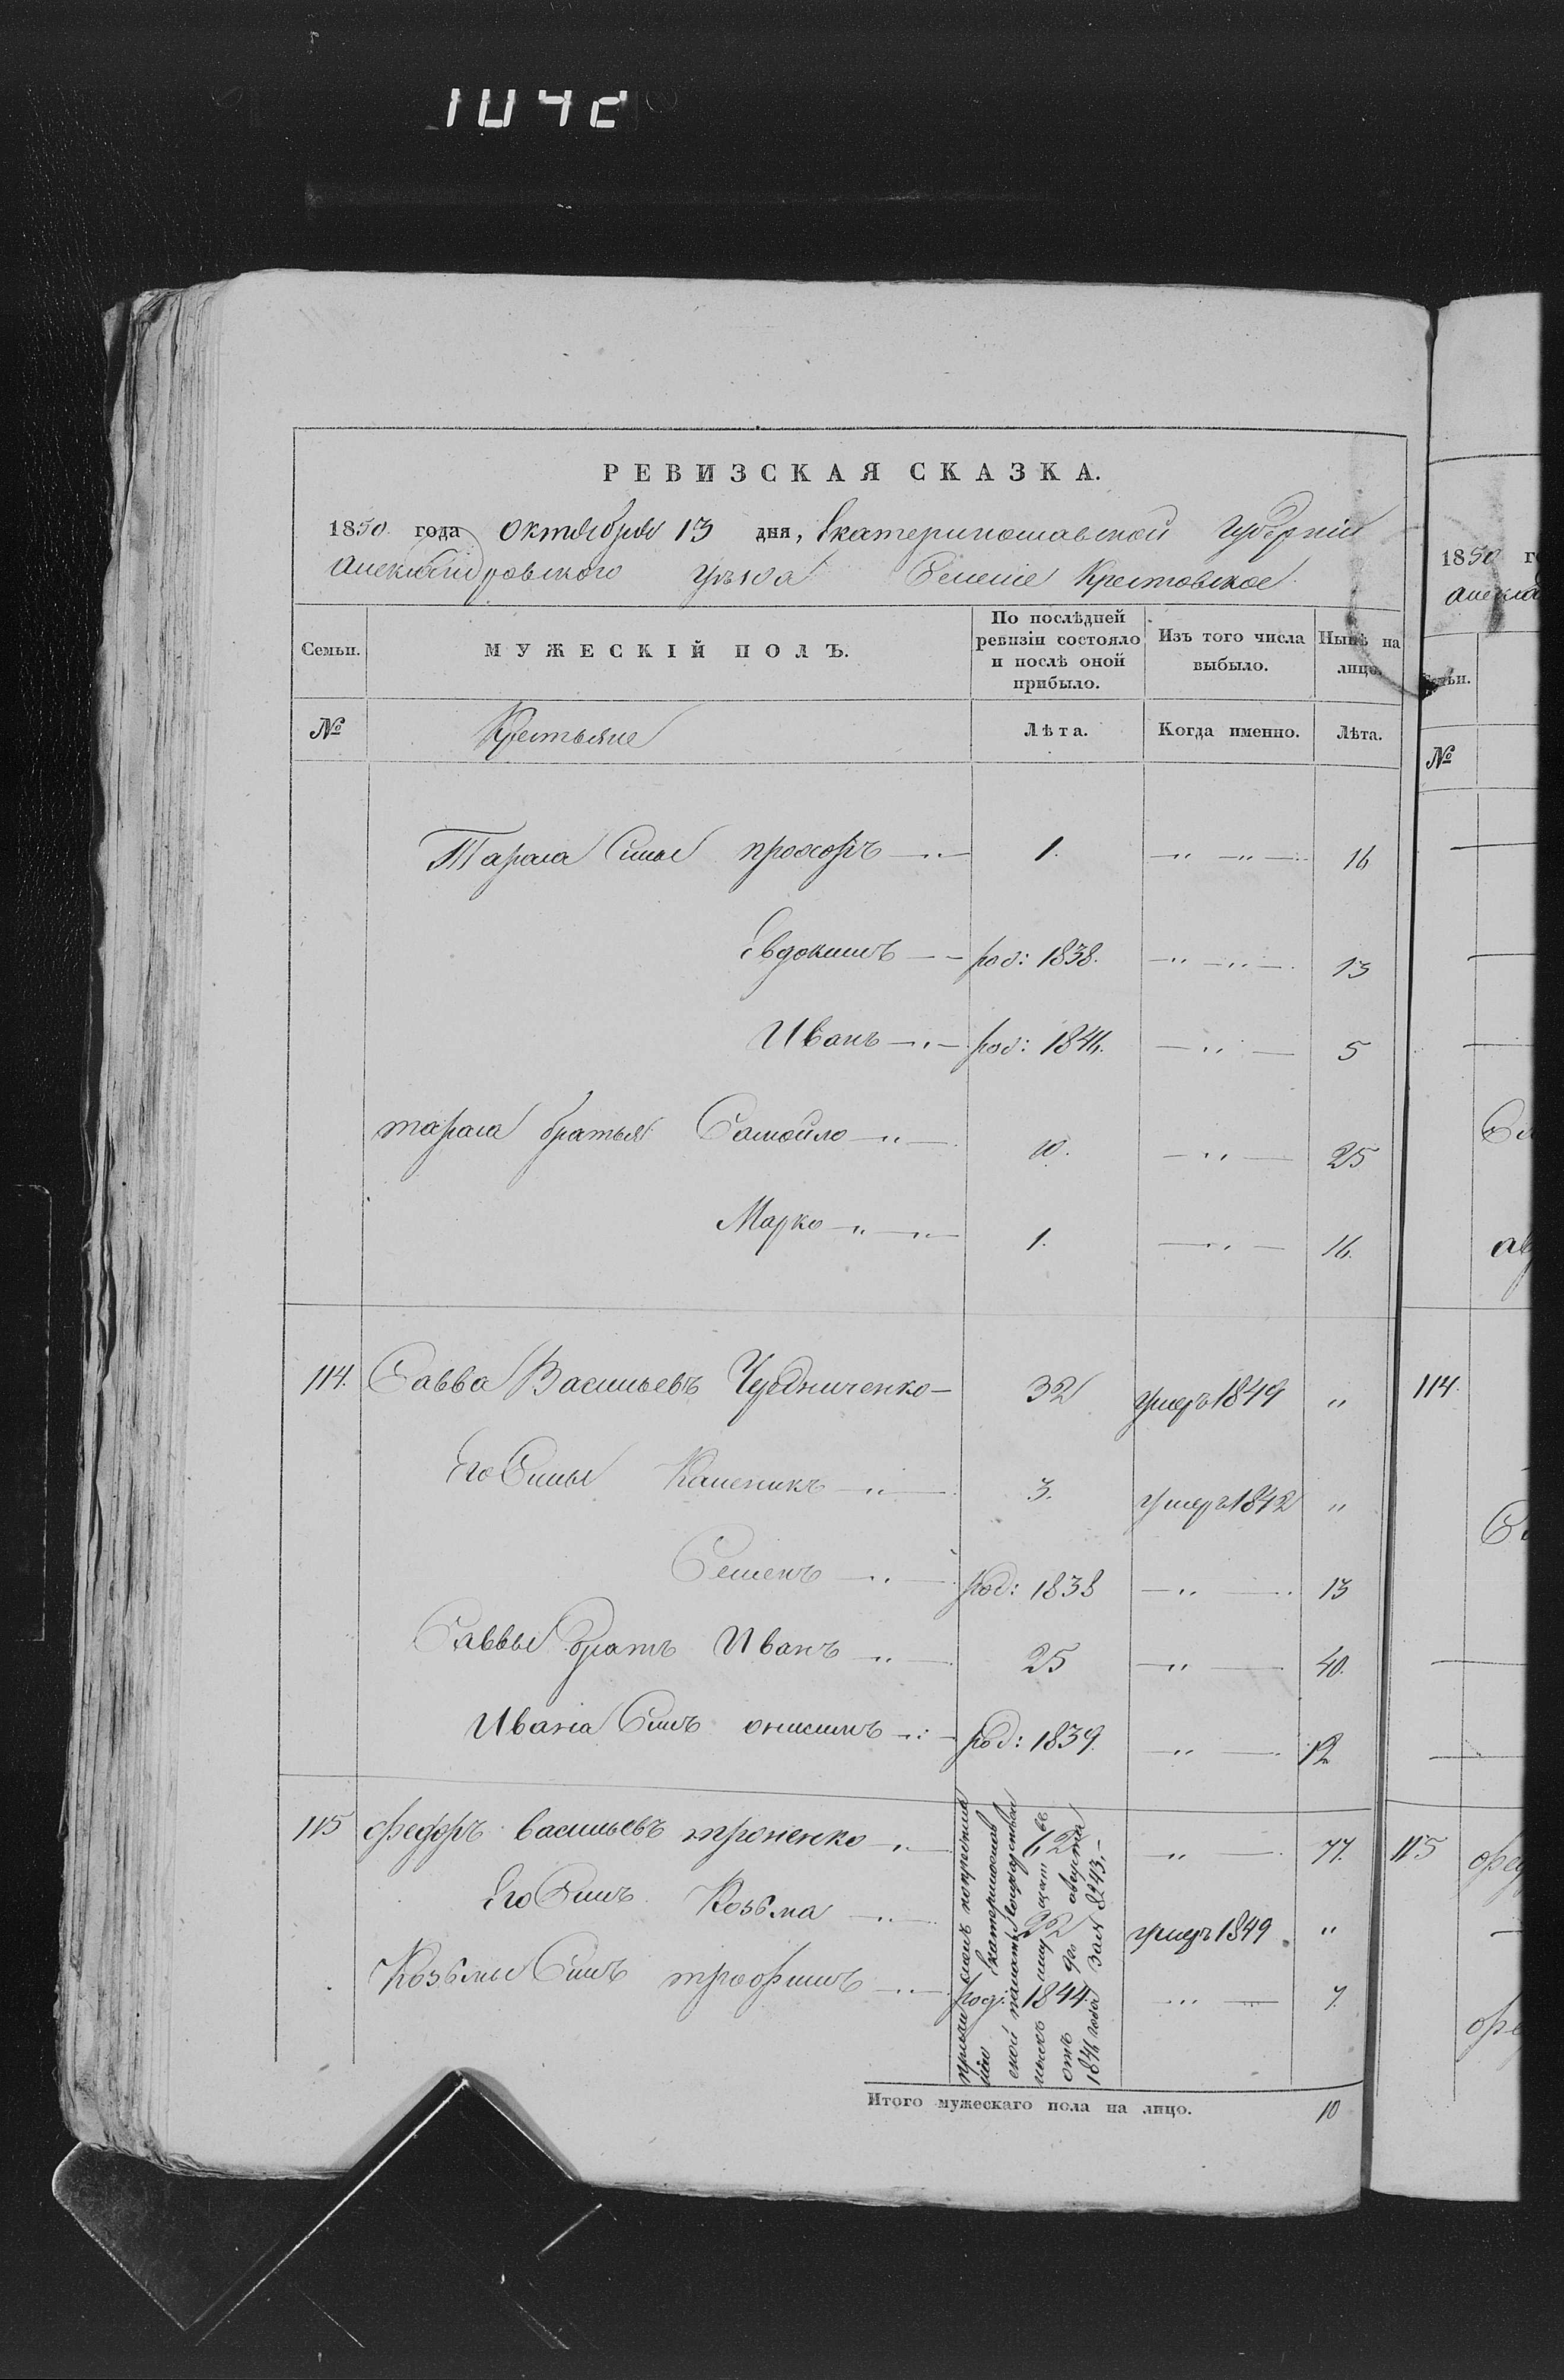 1042
РЕВИЗСКАЯ СКАЗКА.
1850 года Октября 13 дня, Екатеринославской Губерніи
Александровского уѣзда Селеніе Крестовское
Семьи. МУЖЕСКІЙ ПОЛЪ. По послѣдней ревизіи состояло и послѣ оной прибыло. Изъ того числа выбыло. Нынѣ на лицо.
№ Крестьяне Лѣта. Когда именно. Лѣта.
Тараса Сыны прохоръ 1. 16
Евдокимъ род: 1838. 13
Иванъ род: 1846. 5
тараса братья Самойло 10. 25
Марко 1. 16.
114. Савва Васильевъ Чередниченко 32 умеръ 1849 "
Его Сыны Каленикъ 3. умеръ 1842 "
Семенъ род: 1838 13
Саввы братъ Иванъ 25 40.
Ивана Сынъ онисимъ род: 1839. 12
115 федоръ васильевъ троненко 62 " 77.
Его Сынъ Козьма 22 умеръ 1849. "
Козьмы Сынъ трофимъ род: 1844. 7.
Екатеринослав
ской палаты Государствен
ныхъ имущест въ
отъ августа
1846 года За № 8243,
Итого мужескаго пола на лицо. 10
1850 г
Алекса
Семьи.
№
114.
115 фед